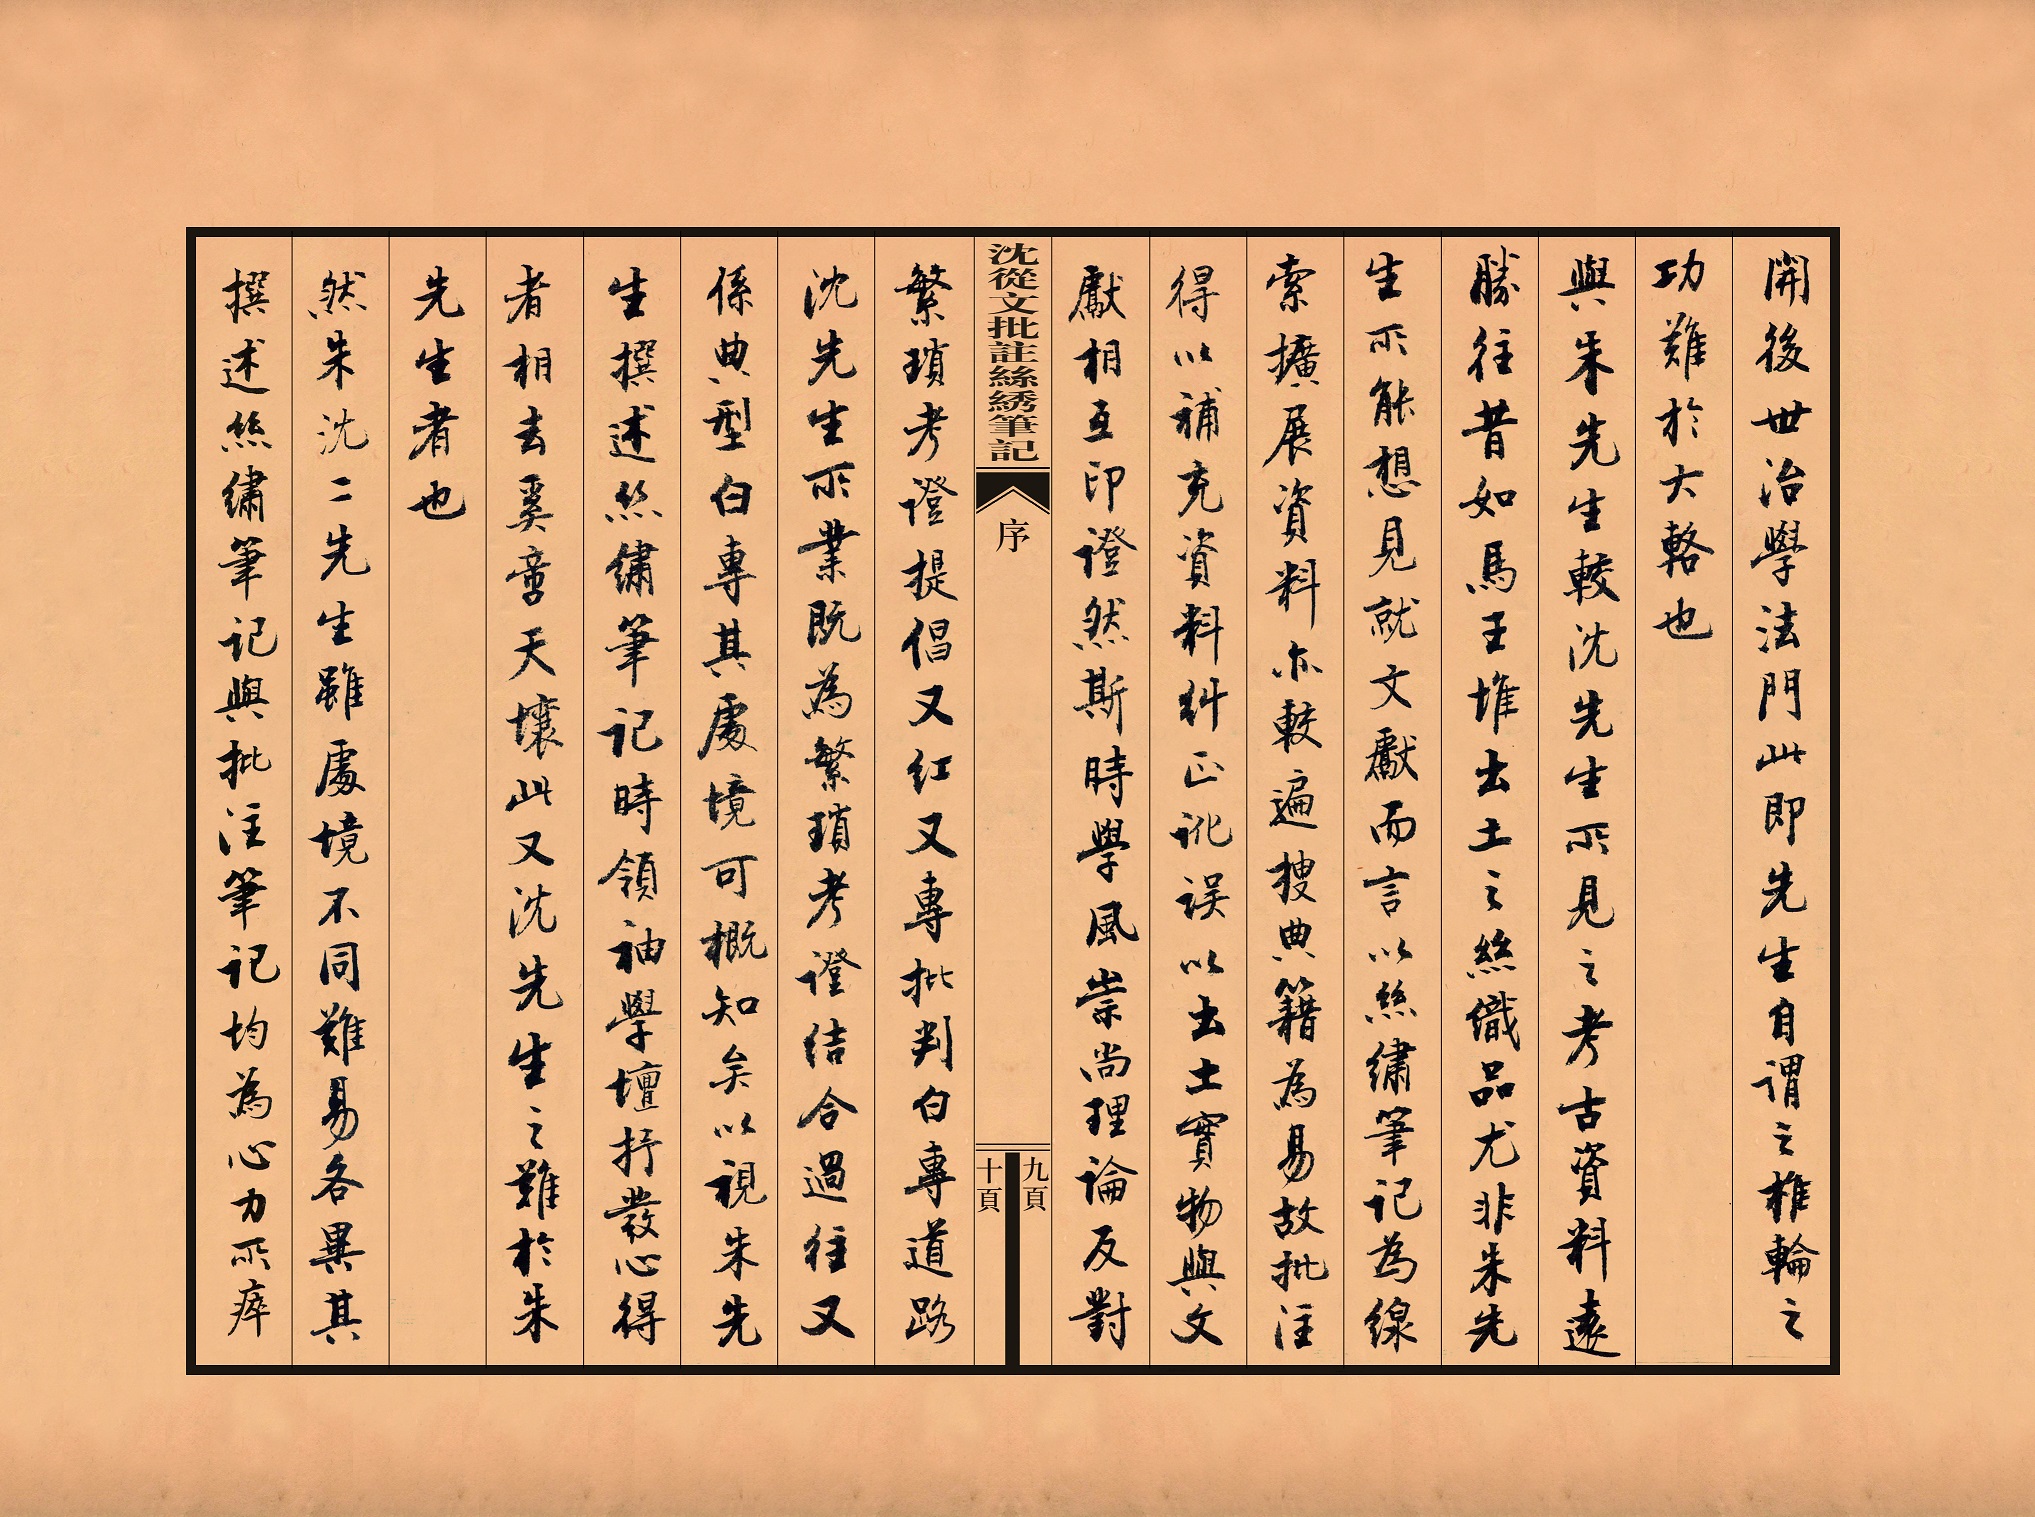 開後世治學法門此即先生自謂之椎輪之
功難於大輅也
與朱先生較沈先生所見之考古資料遠
勝往昔如馬王堆出土之絲織品尤非朱先
生所能想見就文獻而言以絲繡筆記為線
索擴展資料亦較遍搜典籍為易故批注
得以補充資料糾正訛误以出土實物與文
獻相互印證然斯時學風崇尚理論反對
沈從文批註絲綉筆記
序
九頁
十頁
繁瑣考證提倡又红又專批判白專道路
沈先生所業既為繁瑣考證结合過往又
係典型白專其處境可概知矣以視朱先
生撰述絲繡筆記時領袖學壇抒發心得
者相去奚啻天壤此又沈先生之難於朱
先生者也
然朱沈二先生雖處境不同難易各異其
撰述絲繡筆記與批注筆記均為心力所瘁